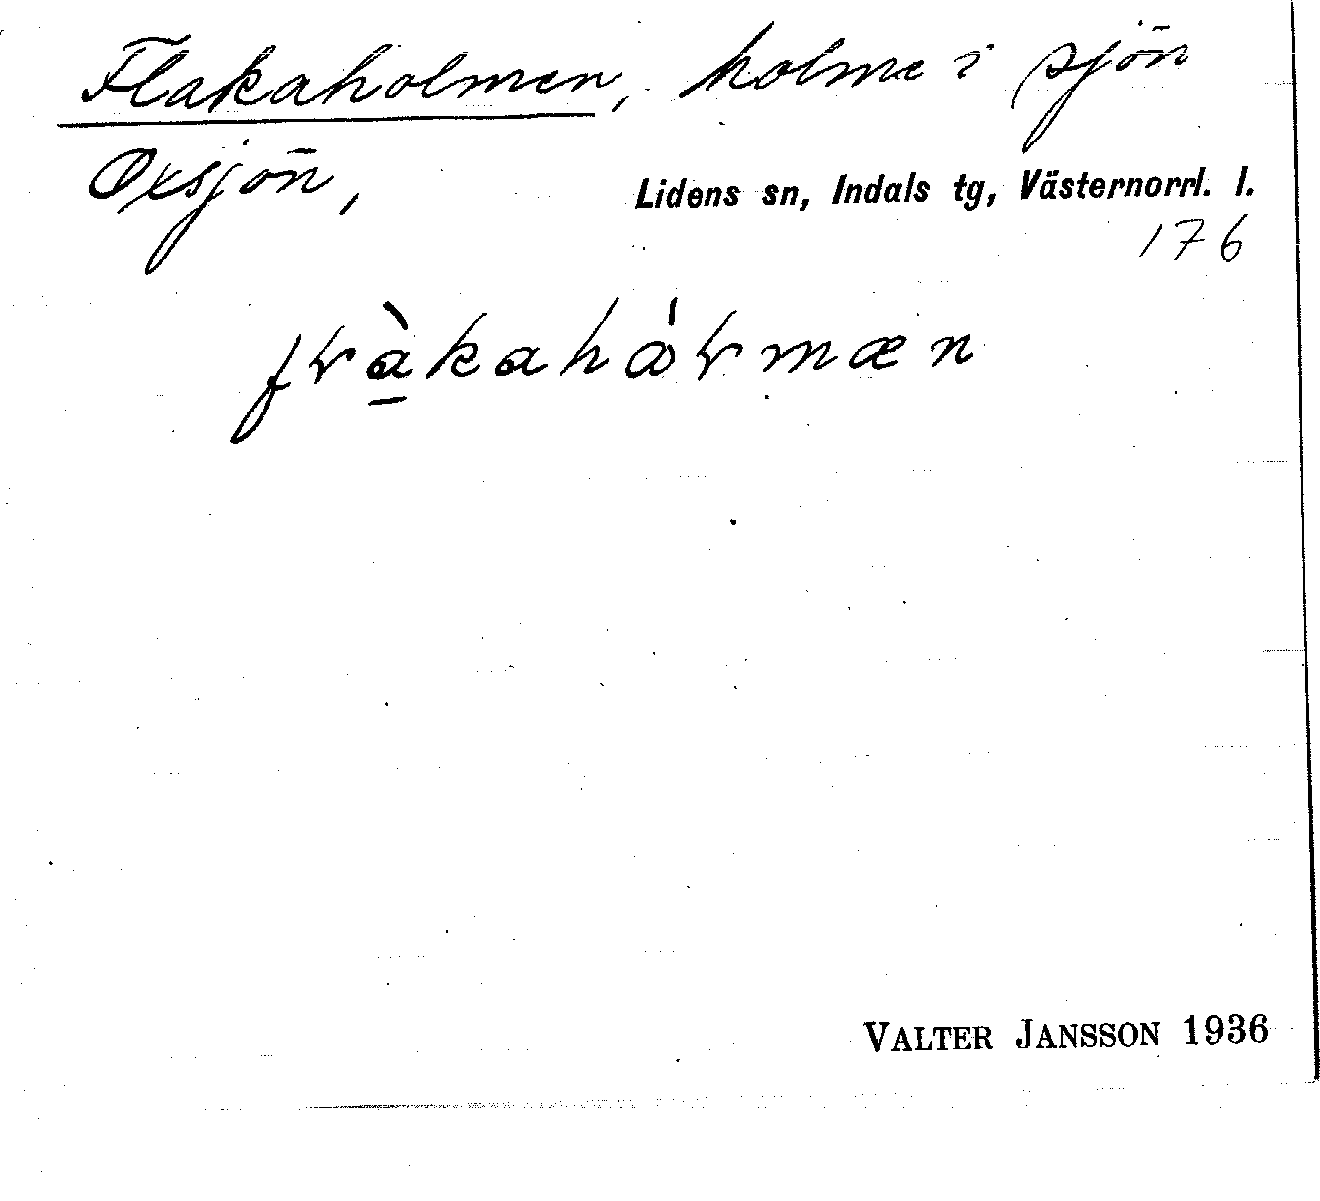 Flakaholmen, holme i sjön
Oxsjön,
Lidens sn, Indals tg, Västernorrl. l.
176
VALTER JANSSON 1936